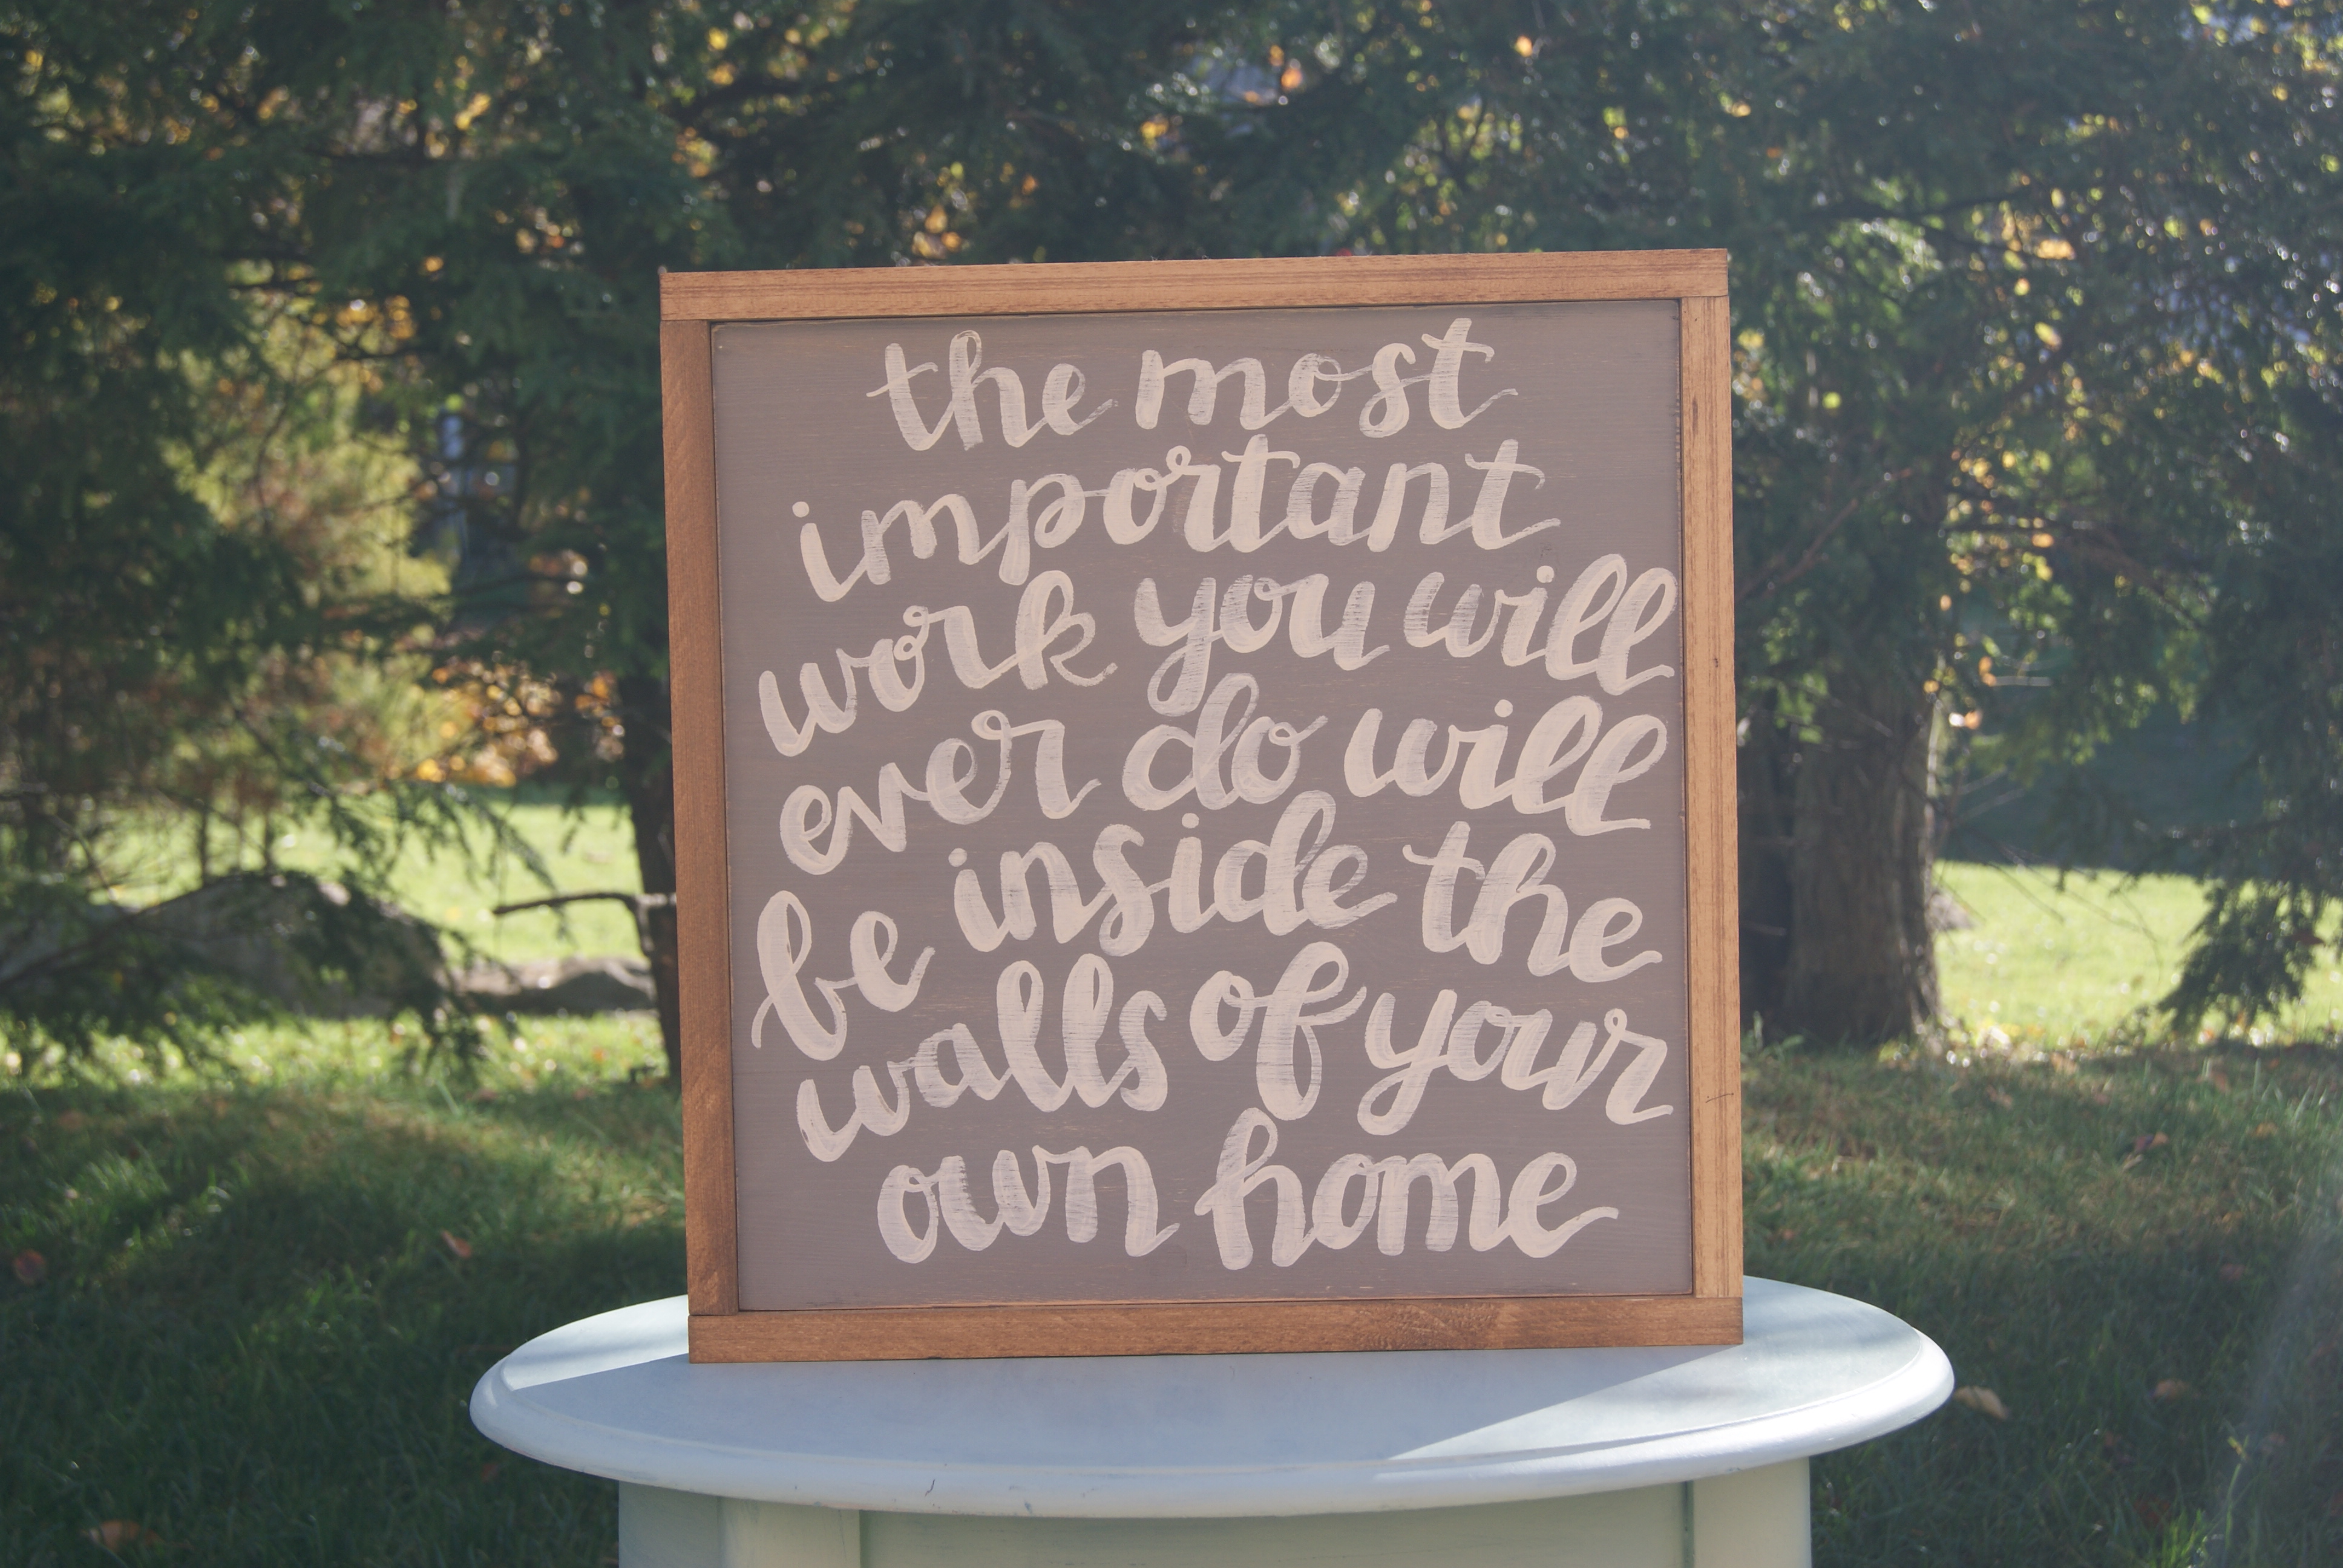 the most
important
work you will
ever do will
be inside the
walls of your
own home